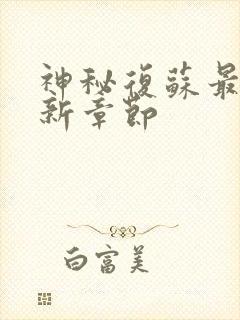 神秘復蘇最
新章節
白富美